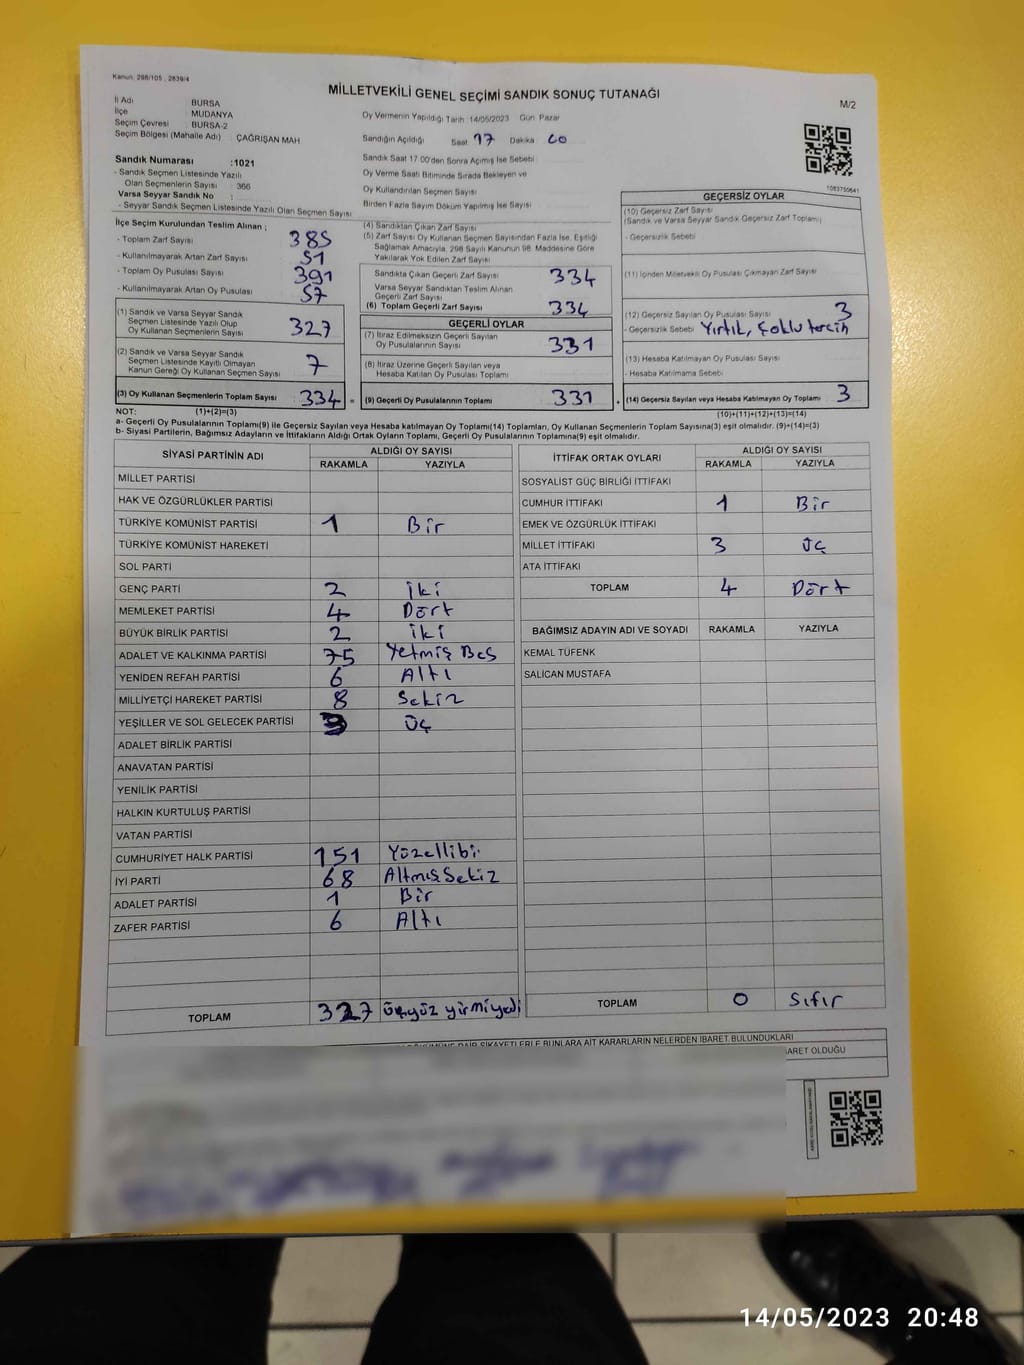 Kanun, 298/105 , 2839/4
MİLLETVEKİLİ GENEL SEÇİMİ SANDIK SONUÇ TUTANAĞI
M/2
İl Adı BURSA
İlçe MUDANYA
Seçim Çevresi BURSA-2
Seçim Bölgesi (Mahalle Adı) : ÇAĞRIŞAN MAH
Sandık Numarası :1021
- Sandık Seçmen Listesinde Yazılı
Olan Seçmenlerin Sayısı : 366
Varsa Seyyar Sandık No :
- Seyyar Sandık Seçmen Listesinde Yazılı Olan Seçmen Sayısı
Oy Vermenin Yapıldığı Tarih 14/05/2023 Gün Pazar
Sandığın Açıldığı Saat 17 Dakika 00
Sandık Saat 17 00'den Sonra Açımış İse Sebebi
Oy Verme Saati Bitiminde Sırada Bekleyen ve
Oy Kullandırılan Seçmen Sayısı
Birden Fazla Sayım Döküm Yapılmış İse Sayısı
1083750641
İlçe Seçim Kurulundan Teslim Alınan ;
- Toplam Zarf Sayısı 385
- Kullanılmayarak Artan Zarf Sayısı 51
- Toplam Oy Pusulası Sayısı 391
- Kullanılmayarak Artan Oy Pusulası 57
(1) Sandık ve Varsa Seyyar Sandık
Seçmen Listesinde Yazılı Olup
Oy Kullanan Seçmenlerin Sayısı 327
(2) Sandık ve Varsa Seyyar Sandık
Seçmen Listesinde Kayıtlı Olmayan
Kanun Gereği Oy Kullanan Seçmen Sayısı 7
(3) Oy Kullanan Seçmenlerin Toplam Sayısı 334 =
(4) Sandıktan Çıkan Zarf Sayısı
(5) Zarf Sayısı Oy Kullanan Seçmen Sayısından Fazla İse, Eşitliği
Sağlamak Amacıyla, 298 Sayılı Kanunun 98. Maddesine Göre
Yakılarak Yok Edilen Zarf Sayısı
Sandıkta Çıkan Geçerli Zarf Sayısı 334
Varsa Seyyar Sandıktan Teslim Alınan
Geçerli Zarf Sayısı
(6) Toplam Geçerli Zarf Sayısı 334
GEÇERLİ OYLAR
(7) İtiraz Edilmeksizin Geçerli Sayılan
Oy Pusulalarının Sayısı 331
(8) İtiraz Üzerine Geçerli Sayılan veya
Hesaba Katılan Oy Pusulası Toplamı
(9) Geçerli Oy Pusulalarının Toplamı 331 +
GEÇERSİZ OYLAR
(10) Geçersiz Zarf Sayısı
(Sandık ve Varsa Seyyar Sandık Geçersiz Zarf Toplamı)
- Geçersizlik Sebebi
(11) İçinden Milletvekili Oy Pusulası Çıkmayan Zarf Sayısı
(12) Geçersiz Sayılan Oy Pusulası Sayısı 3
- Geçersizlik Sebebi Yırtık, Çoklu tercih
(13) Hesaba Katılmayan Oy Pusulası Sayısı
- Hesaba Katılmama Sebebi
(14) Geçersiz Sayılan veya Hesaba Katılmayan Oy Toplamı 3
NOT: (1)+(2)=(3) (10)+(11)+(12)+(13)=(14)
a- Geçerli Oy Pusulaları Toplamı(9) ile Geçersiz Sayılan veya Hesaba katılmayan Oy Toplamı(14) Toplamları, Oy Kullanan Seçmenlerin Toplam Sayısına(3) eşit olmalıdır. (9)+(14)=(3)
b- Siyasi Partilerin, Bağımsız Adayların ve İttifakların Aldığı Ortak Oyların Toplamı, Geçerli Oy Pusulalarının Toplamına(9) eşit olmalıdır.
SİYASİ PARTİNİN ADI ALDIĞI OY SAYISI
RAKAMLA YAZIYLA
MİLLET PARTİSİ
HAK VE ÖZGÜRLÜKLER PARTİSİ
TÜRKİYE KOMÜNİST PARTİSİ 1 Bir
TÜRKİYE KOMÜNİST HAREKETİ
SOL PARTİ
GENÇ PARTİ 2 iki
MEMLEKET PARTİSİ 4 Dört
BÜYÜK BİRLİK PARTİSİ 2 iki
ADALET VE KALKINMA PARTİSİ 75 Yetmiş Beş
YENİDEN REFAH PARTİSİ 6 Altı
MİLLİYETÇİ HAREKET PARTİSİ 8 Sekiz
YEŞİLLER VE SOL GELECEK PARTİSİ 3 üç
ADALET BİRLİK PARTİSİ
ANAVATAN PARTİSİ
YENİLİK PARTİSİ
HALKIN KURTULUŞ PARTİSİ
VATAN PARTİSİ
CUMHURİYET HALK PARTİSİ 151 Yüzellibir
İYİ PARTİ 68 AltmışSekiz
ADALET PARTİSİ 1 Bir
ZAFER PARTİSİ 6 Altı
TOPLAM 327 üçyüz yirmiyedi
İTTİFAK ORTAK OYLARI ALDIĞI OY SAYISI
RAKAMLA YAZIYLA
SOSYALİST GÜÇ BİRLİĞİ İTTİFAKI
CUMHUR İTTİFAKI 1 Bir
EMEK VE ÖZGÜRLÜK İTTİFAKI
MİLLET İTTİFAKI 3 üç
ATA İTTİFAKI
TOPLAM 4 Dört
BAĞIMSIZ ADAYIN ADI VE SOYADI RAKAMLA YAZIYLA
KEMAL TÜFENK
SALİCAN MUSTAFA
TOPLAM 0 Sıfır
DAİR ŞİKAYETLERLE BUNLARA AİT KARARLARIN NELERDEN İBARET BULUNDUKLARI
OLDUĞU
14/05/2023 20:48